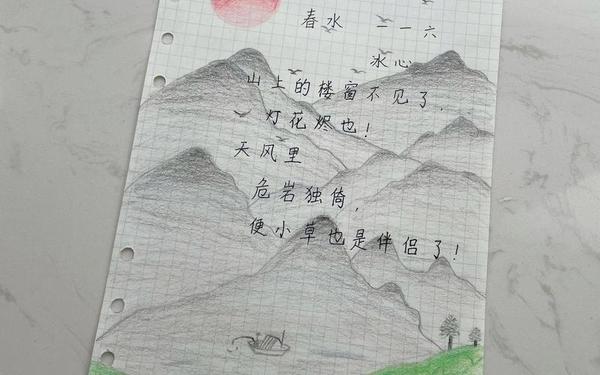 春水 二一六
冰心
山上的楼窗不见了,
灯花烬也!
天风里
危岩独倚,
便小草也是伴侣了!